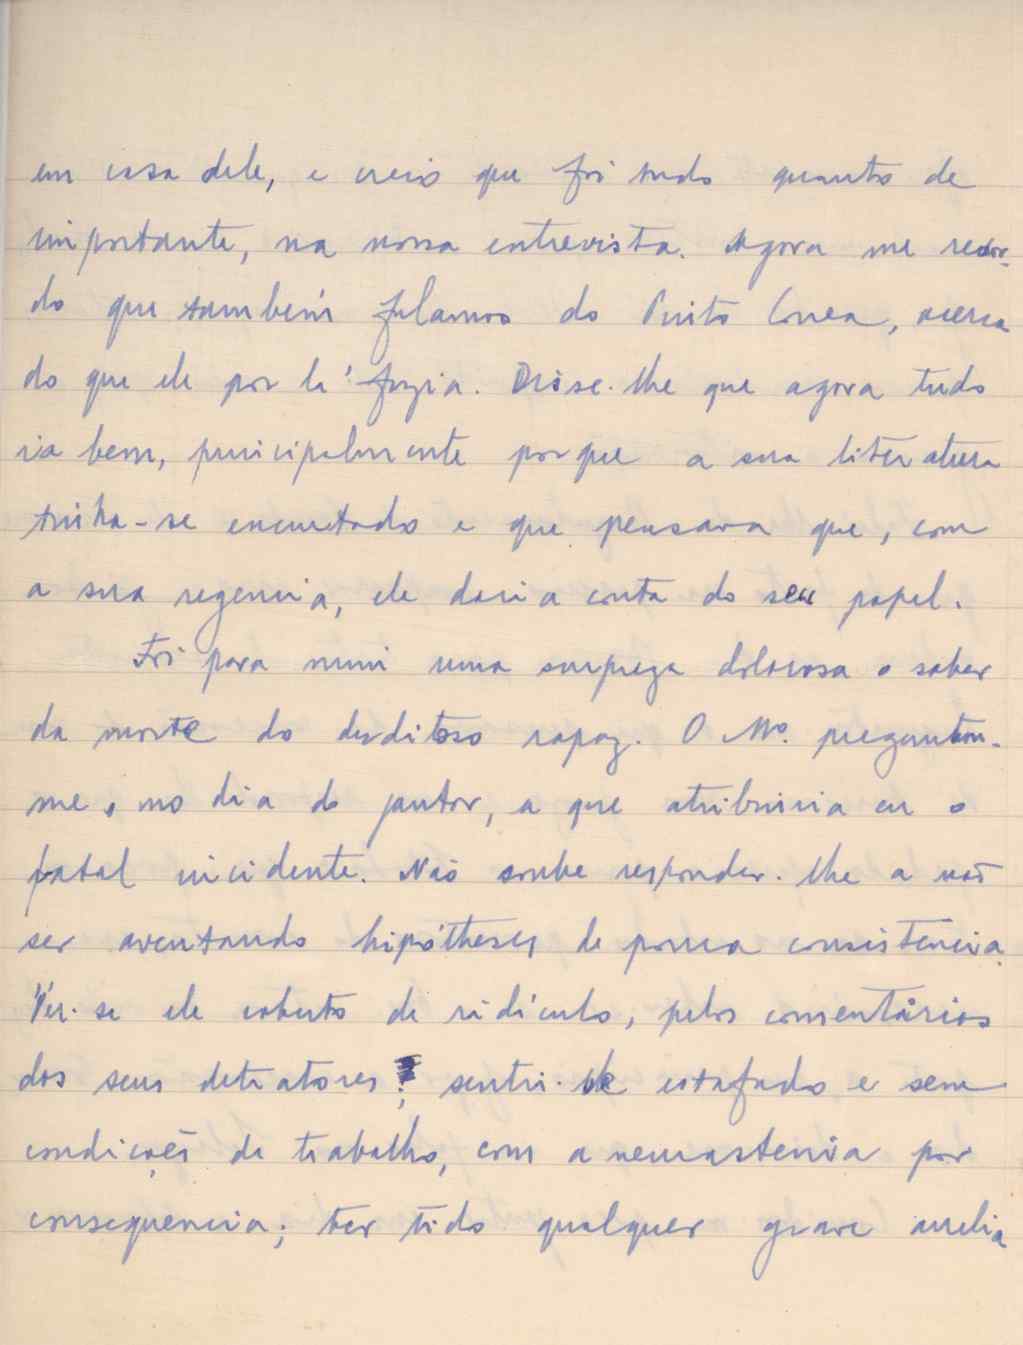 em casa dele, e creio que foi tudo quanto de
importante, na nossa entrevista. Agora me recor-
do que tambem falamos do Pinto Correa, acerca
do que ele por lá fazia. Disse-lhe que agora tudo
ia bem, principalmente porque a sua literatura
tinha-se encurtado e que pensava que, com
a sua regencia, ele daria conta do seu papel.
Foi para mim uma surpreza dolorosa o saber
da morte do desditoso rapaz. O Mº. preguntou-
me, no dia do jantar, a que atribuiria eu o
fatal incidente. Não soube responder-lhe a não
ser aventando hipótheses de pouca consistencia.
Ver-se ele coberto de ridículo, pelos comentários
dos seus detratores; sentir-se estafado e sem
condições de trabalho, com a neurastenia por
consequencia; ter tido qualquer grave